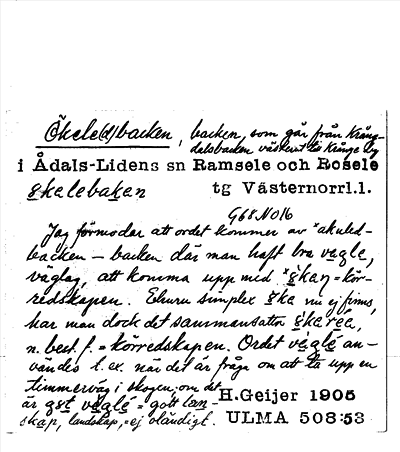 Ökele(d)backen, backen, som går från Kräng-
delsbacken västerut
i Ådals-Lidens sn Ramsele och Resele
skelebaken tg Västernorrl.l.
G68N016
Jag förmodar att ordet kommer av *akuled-
backen – backen där man haft bra vegle,
väglag, att komma upp med *skan = kör-
redskapen. Ehuru simplex ska nu ej finns,
har man dock det sammansatta skareé,
n. best. f. = körredskapen. Ordet veglé an-
vändes t. ex. när det är fråga om att ta upp en
timmerväg i skogen; om det
är gst veglé = gott lœn-
skap, landskap, = ej oländigt.
H.Geijer 1905
ULMA 508:53